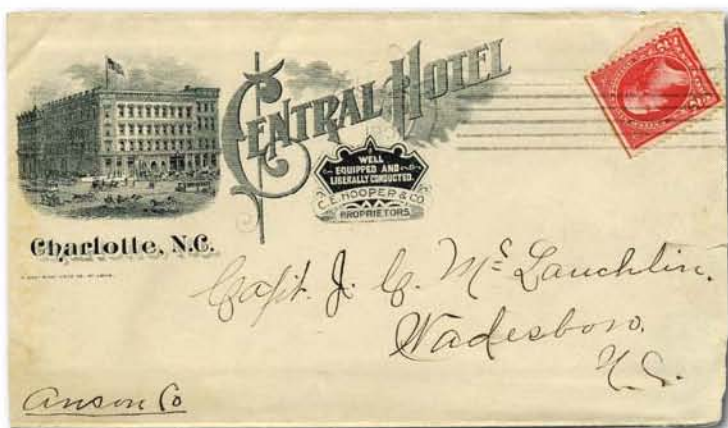 CENTRAL HOTEL
WELL
EQUIPPED AND
LIBERALLY CONDUCTED.
C.E. HOOPER & CO.
PROPRIETORS
Charlotte, N.C.
Capt. J. C. McLauchlin.
Wadesboro.
N.C.
Anson Co